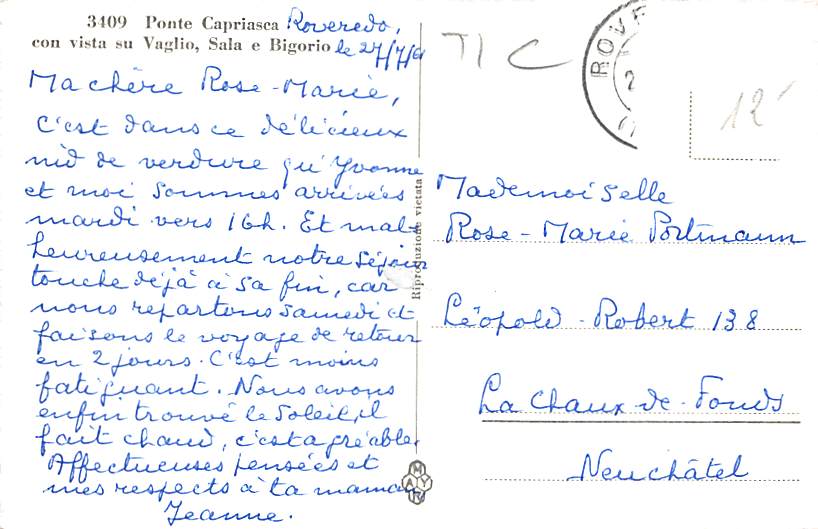 3409 Ponte Capriasca
con vista su Vaglio, Sala e Bigorio
Roveredo,
le 27/7/61
Ma chère Rose-Marie,
C'est dans ce délicieux
nid de verdure qu'Yvonne
et moi sommes arrivées
mardi vers 16h. Et mal-
heureusement notre séjour
touche déjà à sa fin, car
nous repartons samedi et
faisons le voyage de retour
en 2 jours. C'est moins
fatiguant. Nous avons
enfin trouvé le soleil, il
fait chaud, c'est agréable.
Affectueuses pensées et
mes respects à ta maman
Jeanne.
Riproduzione vietata
TIC
ROVE
12
Mademoiselle
Rose-Marie Portmann
Léopold-Robert 138
La Chaux-de-Fonds
Neuchâtel